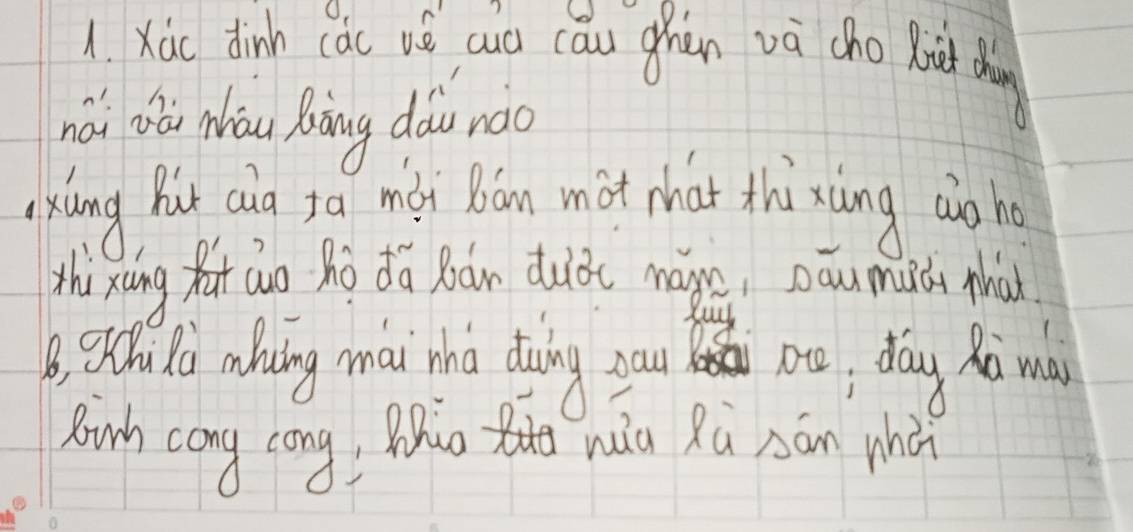 1. Xác định các vế của câu ghép và cho biết chúng
nối với nhau bằng dấu nào
a, xúng hút của ta mới bắn một phát thì xúng của họ
thì xúng của họ đã bắn được năm, sáu mươi phát.
b, Khi là những mái nhà đứng sau luỹ tre, đây là mái
bình cong cong, khia nữa là sân phơi
nh®
0